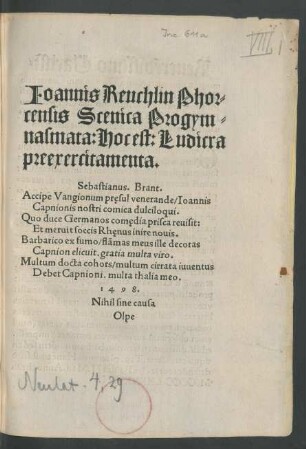 Inc 611a
VIII,
Ioannis Reuchlin Phor-
censis Scenica Progym-
nasmata: Hoc est: Ludicra
preexercitamenta.
Sebastianus. Brant.
Accipe Vangionum pręsul venerande/Ioannis
Capnionis nostri comica dulciloqui.
Quo duce Germanos comędia prisca reuisit:
Et meruit soccis Rhęnus inire nouis.
Barbarico ex fumo/flãmas meus ille decoras
Capnion elicuit. gratia multa viro.
Multum docta cohors/multum cirrata iuuentus
Debet Capnioni. multa thalia meo.
1498.
Nihil sine causa
Olpe
4, 29